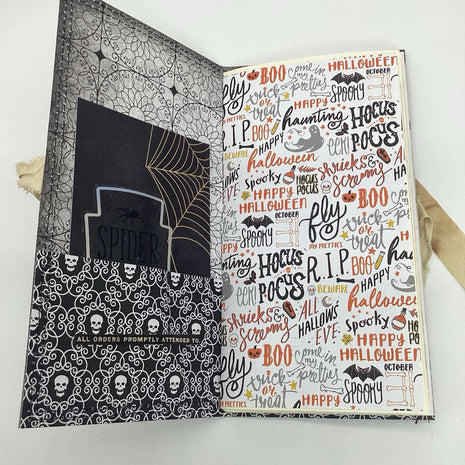 SPIDER
ALL ORDERS PROMPTLY ATTENDED TO.
BOO
come in my pretties
HALLOWEEN
OCTOBER
fly
trick or treat
SPOOKY
HAPPY
haunting
HOCUS POCUS
R.I.P.
BOO
HAPPY
eeri
BEWARE
halloween
shrieks & screams
ALL HALLOWS EVE
Spooky
HOCUS POCUS
HAPPY HALLOWEEN
OCTOBER
fly
MY PRETTIES
trick or treat
SPOOKY
HAPPY
haunting
R.I.P.
BOO
HOCUS
eeri POCUS
BEWARE
halloween
shrieks & screams
ALL HALLOWS EVE
Spooky
HOCUS POCUS
HAPPY HALLOWEEN
BOO
come in my pretties
OCTOBER
fly
trick or treat
SPOOKY
MY PRETTIES
HAPPY